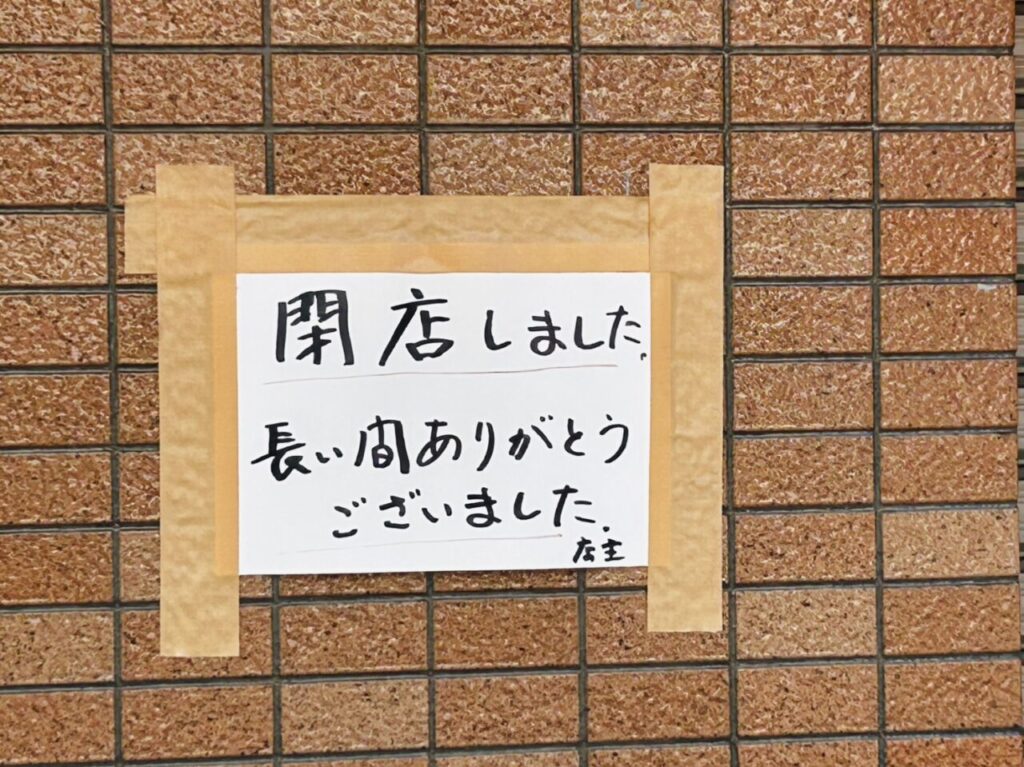 閉店しました.
長い間ありがとう
ございました.
店主